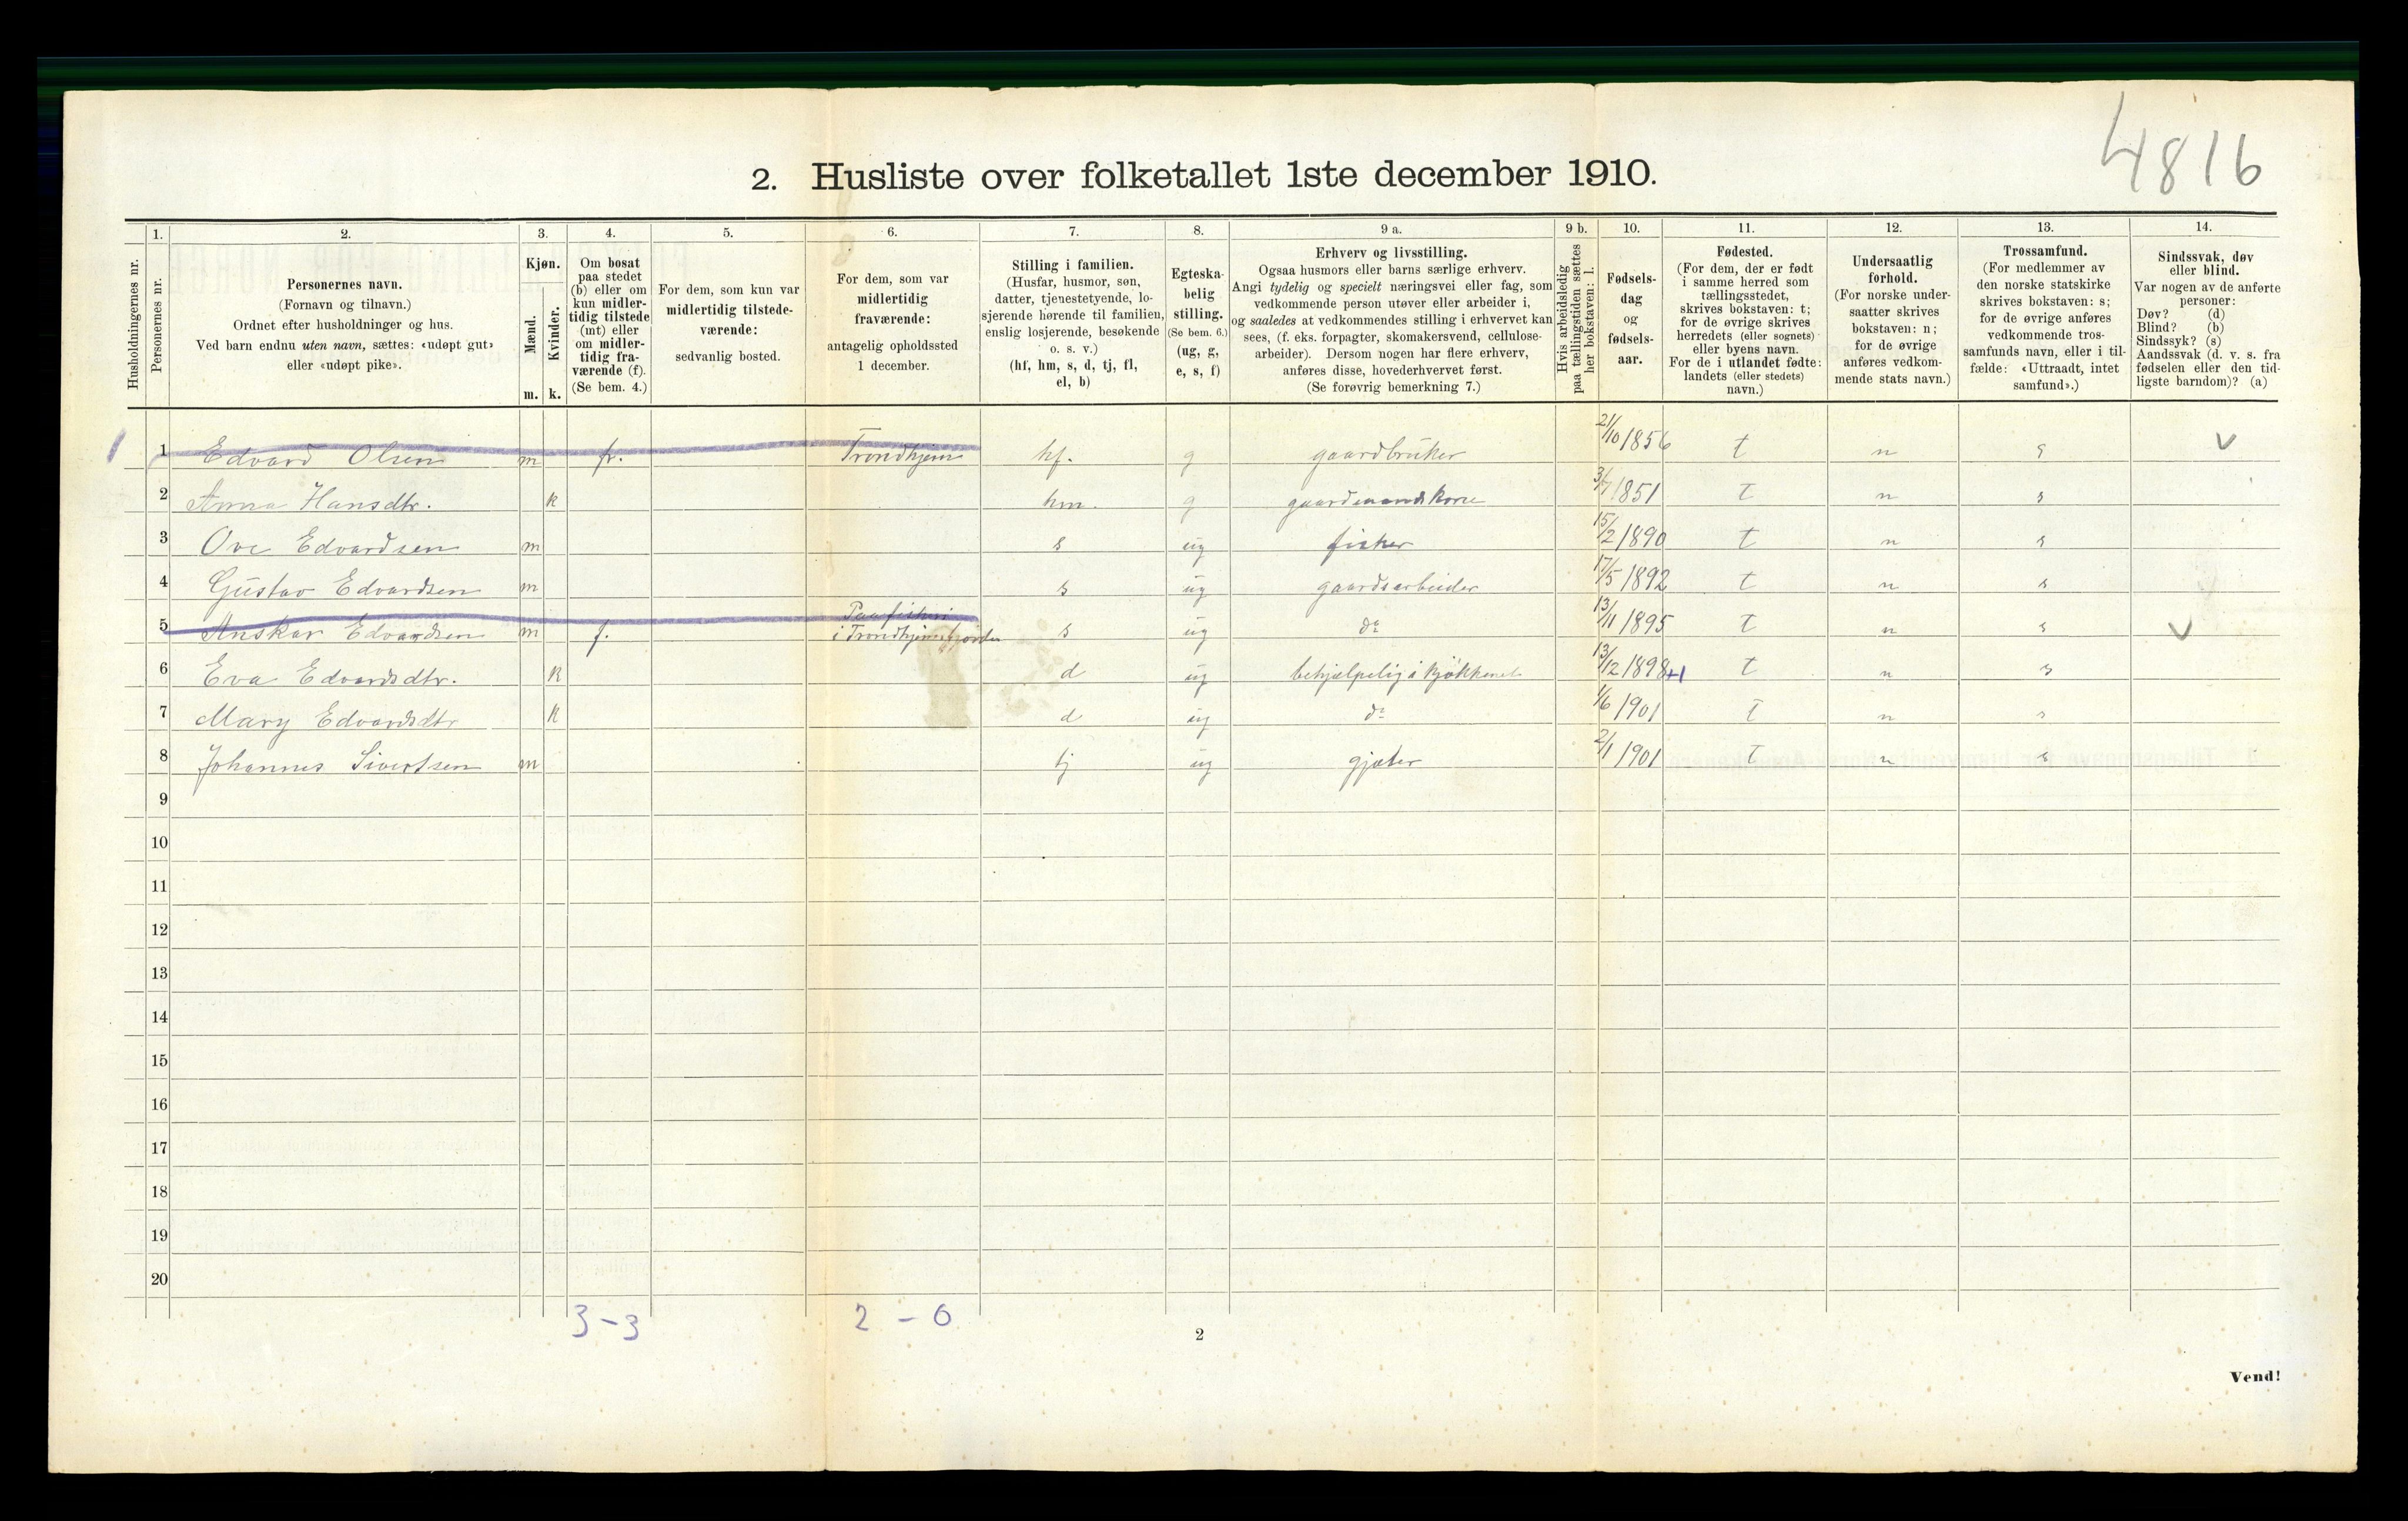 4816
2. Husliste over folketallet 1ste december 1910.
Husholdningernes nr.
1.
Personernes nr.
2.
Personernes navn.
(Fornavn og tilnavn.)
Ordnet efter husholdninger og hus.
Ved barn endnu uten navn, sættes: «udøpt gut»
eller «udøpt pike».
3.
Kjøn.
Mænd.
Kvinder.
m. k.
4.
Om bosat
paa stedet
(b) eller om
kun midler-
tidig tilstede
(mt) eller
om midler-
tidig fra-
værende (f).
(Se bem. 4.)
5.
For dem, som kun var
midlertidig tilstede-
værende:
sedvanlig bosted.
6.
For dem, som var
midlertidig
fraværende:
antagelig opholdssted
1 december.
7.
Stilling i familien.
(Husfar, husmor, søn,
datter, tjenestetyende, lo-
sjerende hørende til familien,
enslig losjerende, besøkende
o. s. v.)
(hf, hm, s, d, tj, fl,
el, b)
8.
Egteska-
belig
stilling.
(Se bem. 6.)
(ug, g,
e, s, f)
9 a.
Erhverv og livsstilling.
Ogsaa husmors eller barns særlige erhverv.
Angi tydelig og specielt næringsvei eller fag, som
vedkommende person utøver eller arbeider i,
og saaledes at vedkommendes stilling i erhvervet kan
sees, (f. eks. forpagter, skomakersvend, cellulose-
arbeider). Dersom nogen har flere erhverv,
anføres disse, hovederhvervet først.
(Se forøvrig bemerkning 7.)
9 b.
Hvis arbeidsledig
paa tællingstiden sættes
her bokstaven: l.
10.
Fødsels-
dag
og
fødsels-
aar.
11.
Fødested.
(For dem, der er født
i samme herred som
tællingsstedet,
skrives bokstaven: t;
for de øvrige skrives
herredets (eller sognets)
eller byens navn.
For de i utlandet fødte:
landets (eller stedets)
navn.)
12.
Undersaatlig
forhold.
(For norske under-
saatter skrives
bokstaven: n;
for de øvrige
anføres vedkom-
mende stats navn.)
13.
Trossamfund.
(For medlemmer av
den norske statskirke
skrives bokstaven: s;
for de øvrige anføres
vedkommende tros-
samfunds navn, eller i til-
fælde: «Uttraadt, intet
samfund».)
14.
Sindssvak, døv
eller blind.
Var nogen av de anførte
personer:
Døv? (d)
Blind? (b)
Sindssyk? (s)
Aandssvak (d. v. s. fra
fødselen eller den tid-
ligste barndom)? (a)
1 1 Edvard Olsen m fr. Trondhjem hf. g gaardbruker 21/10 1856 t n s v
2 Anna Hansdtr. k hm. g gaardmandskone 3/7 1851 t n s
3 Ove Edvardsen m s ug fisker 15/2 1890 t n s
4 Gustav Edvardsen m s ug gaardsarbeider 17/5 1892 t n s
5 Anskar Edvardsen m f. Paa fiskeri i Trondhjemsfjorden s ug do 13/11 1895 t n s v
6 Eva Edvardsdtr. k d ug behjælpelig i kjökkenet 13/12 1898 +1 t n s
7 Mary Edvardsdtr k d ug do 1/6 1901 t n s
8 Johannes Sivertsen m tj ug gjæter 2/1 1901 t n s
9
10
11
12
13
14
15
16
17
18
19
20
3-3 2-0
2
Vend!